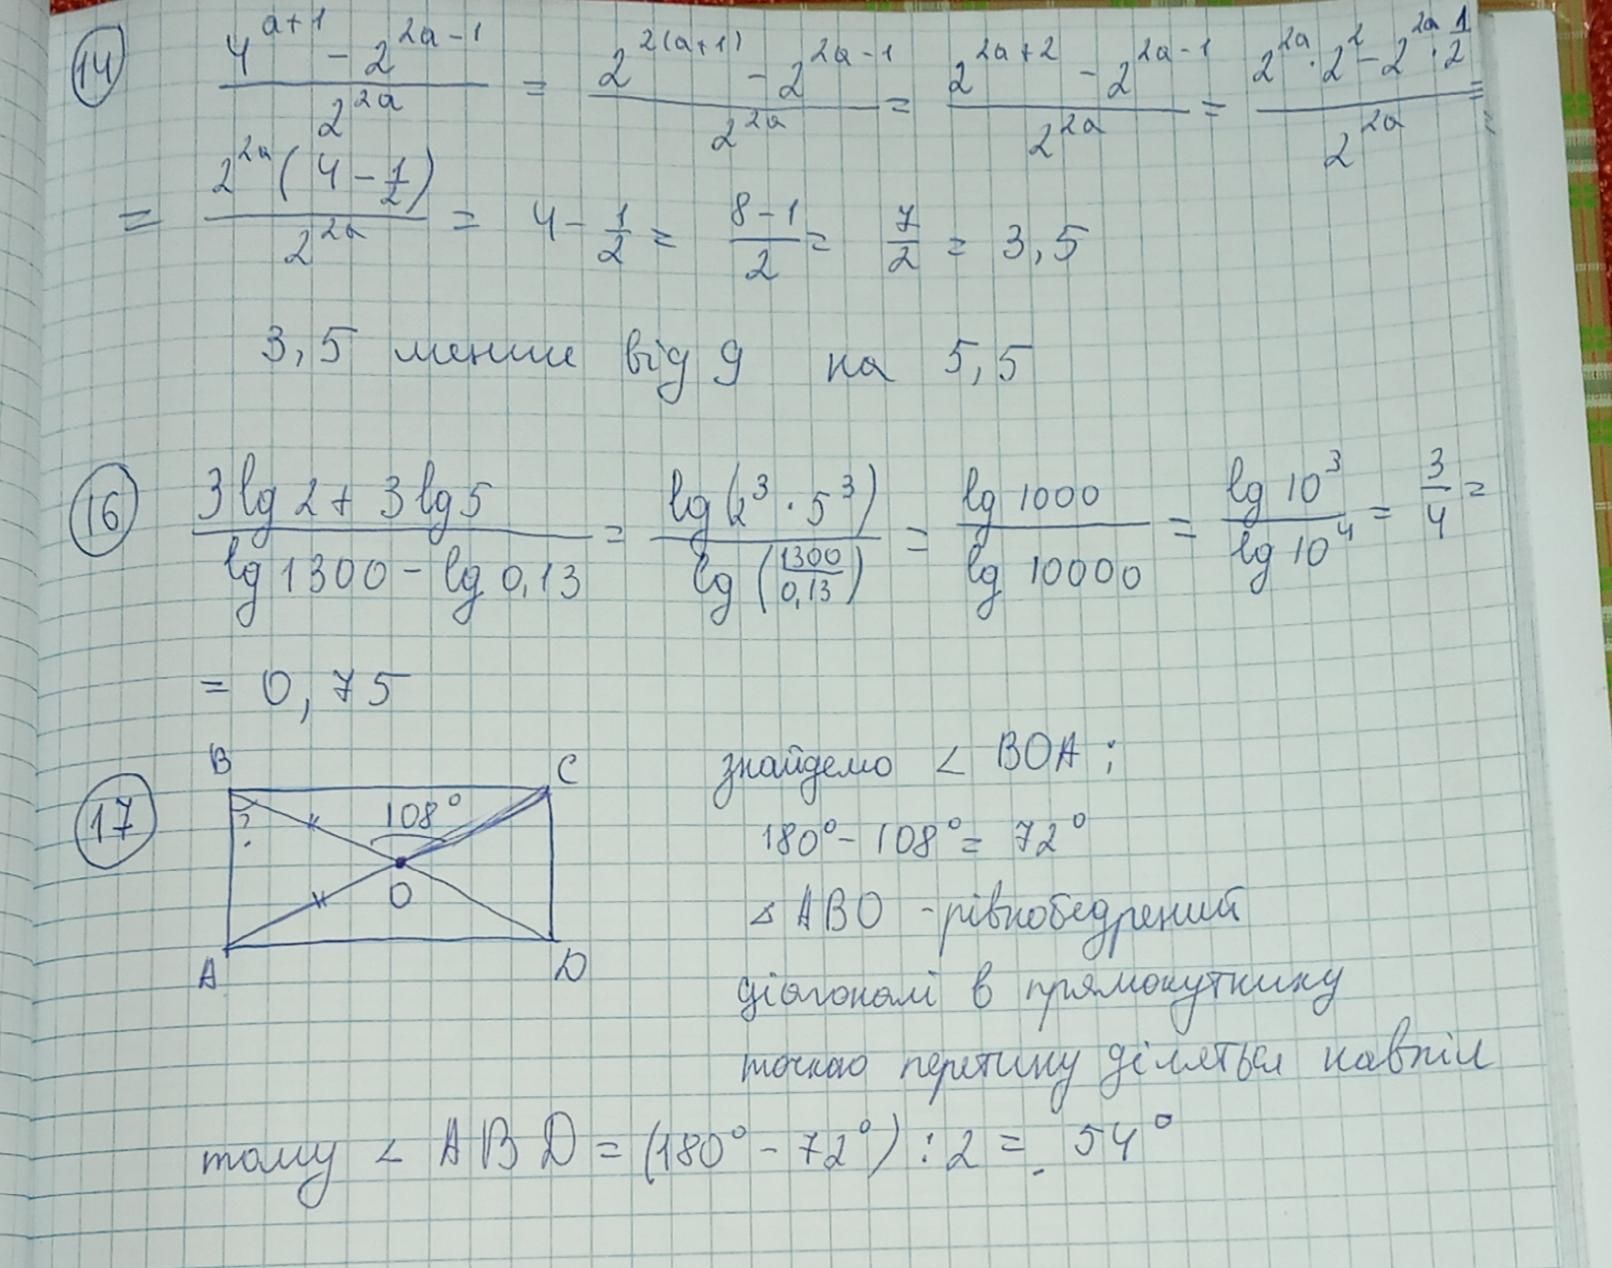 14 (4^(a+1) - 2^(2a-1)) / 2^(2a) = (2^(2(a+1)) - 2^(2a-1)) / 2^(2a) = (2^(2a+2) - 2^(2a-1)) / 2^(2a) = (2^(2a) · 2^2 - 2^(2a) · 1/2) / 2^(2a) =
= 2^(2a) (4 - 1/2) / 2^(2a) = 4 - 1/2 = (8-1)/2 = 7/2 = 3,5
3,5 менше від 9 на 5,5
16 (3 lg 2 + 3 lg 5) / (lg 1300 - lg 0,13) = lg(2^3 · 5^3) / lg(1300/0,13) = lg 1000 / lg 10000 = lg 10^3 / lg 10^4 = 3/4 =
= 0,75
17 B C 108° ? O A D
знайдемо ∠ BOA :
180° - 108° = 72°
△ ABO - рівнобедрений
діагоналі в прямокутнику
точкою перетину діляться навпіл
тому ∠ ABD = (180° - 72°) : 2 = 54°